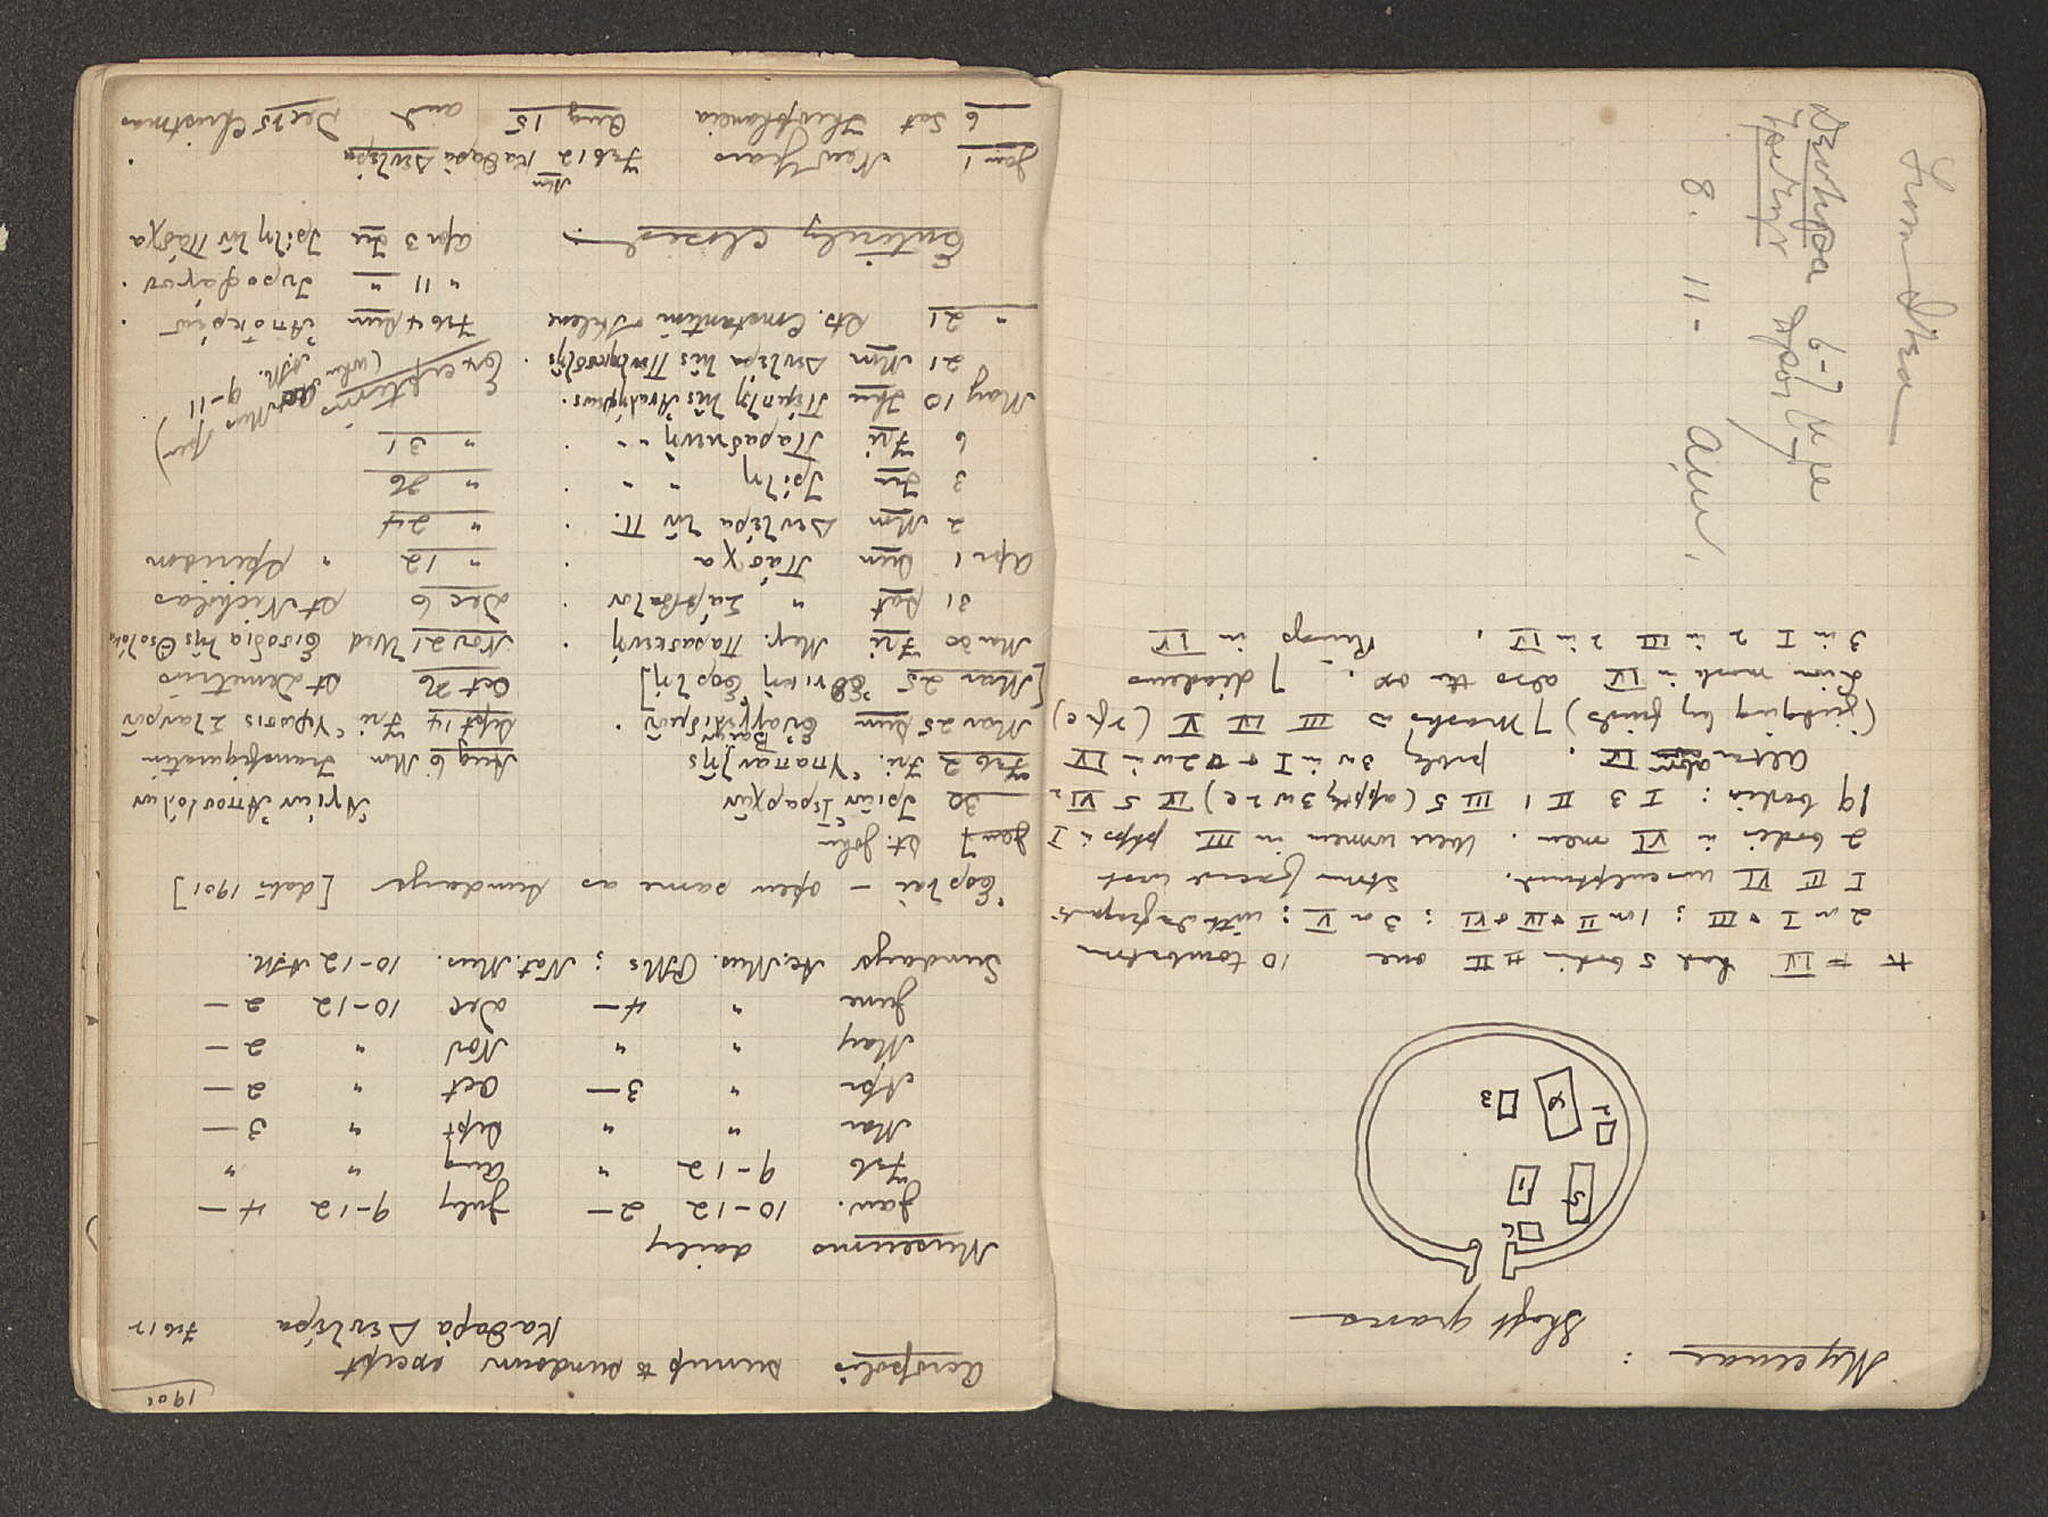 Mycenae :
Shaft graves
6
5
1
2
4
3
IV had 5 bodies II one 10 tombstones
2 on I + III ; 1 on II + IV + VI ; 3 on V ; with fragments
I III VI unsculptured. Stones faced west
2 bodies in VI men. Were women in III phps in I
19 bodies : I 3 II 1 III 5 (apptly 3 w 2 c) IV 5 VI 2
Altar above IV . probly 3 w in I + 2 w in IV
(judging by finds) 7 masks in III IV V (2 for c)
Lion mask in IV also the ox . 7 diadems
3 in I 2 in III 2 in IV . Rings in IV
From Itea
Δευτέρα 6-7 μ με
8. 11-
1901
Acropolis sunup to sundown except
Καθαρὰ Δευτέρα Feb 12
Museums daily
Jan. 10-12 2- July 9-12 4-
Feb 9-12 " Aug " "
Mar " " Sept " 3-
Apr " 3- Oct " 2-
May " " Nov " 2-
June " 4- Dec 10-12 2-
Sundays Ac. Mus. PMs ; Nat. Mus. 10-12 A.M.
Ἑορταὶ - open same as Sundays [date 1901]
Jan 7 St. John
30 Τριῶν Ἱεραρχῶν Ἁγίων Ἀποστόλων
Feb 2 Fri. Ὑπαπαντῆς Aug 6 Mon Transfiguration
Mar 25 Sun Εὐαγγελισμοῦ . Sept 14 Fri Ὕψωσις Σταυροῦ
Βαΐων
[Mar 25 Ἐθνικὴ Ἑορτή] Oct 26 St Demetrius
Mar 30 Fri Μεγ. Παρασκευή . Nov 21 Wed Εἰσόδια τῆς Θεοτόκου
31 Sat " Σάββατον . Dec 6 St Nicholas
Apr 1 Sun Πάσχα . " 12 " Spiridon
2 Mon Δευτέρα τοῦ Π. . " 24
3 Tu Τρίτη " " . " 26
6 Fri Παρασκευή " " . " 31
May 10 Thu Πέμπτη τῆς Ἀναλήψεως.
21 Mon Δευτέρα τῆς Πεντηκοστῆς .
" 21 Sts. Constantine + Helene
Exceptions
(when Ac Mus open
A.M. 9-11)
Feb 4 Sun Ἀποκρέω .
" 11 " Τυροφάγου .
Apr 3 Tu Τρίτη τοῦ Πάσχα
Entirely closed
Jan 1 New Years Feb 12 Mon Καθαρὰ Δευτέρα .
6 Sat Theophaneia Aug 15 and Dec 25 Christmas